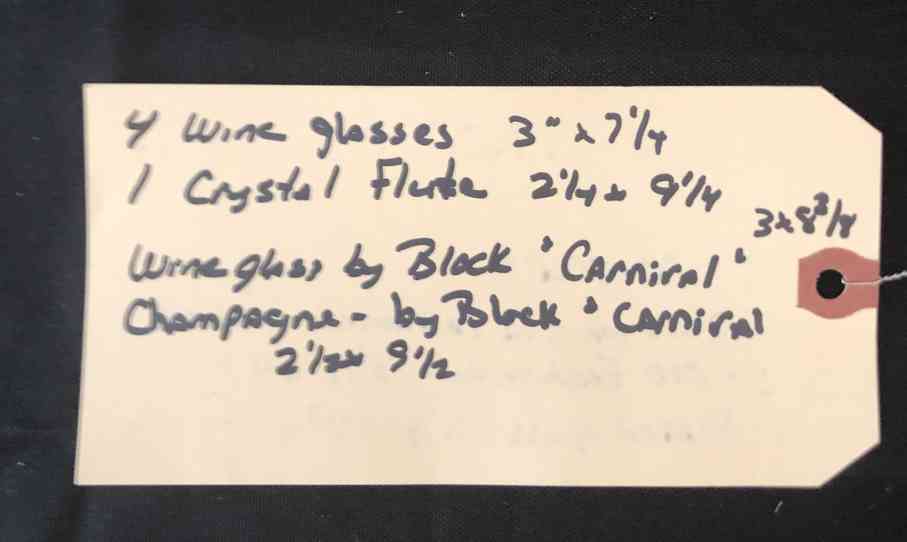 4 Wine glasses 3" x 7 1/4
1 Crystal Flute 2 1/4 x 9 1/4
3 x 8 3/8
Wineglass by Block "Carnival"
Champagne - by Block "Carnival
2 1/2 x 9 1/2